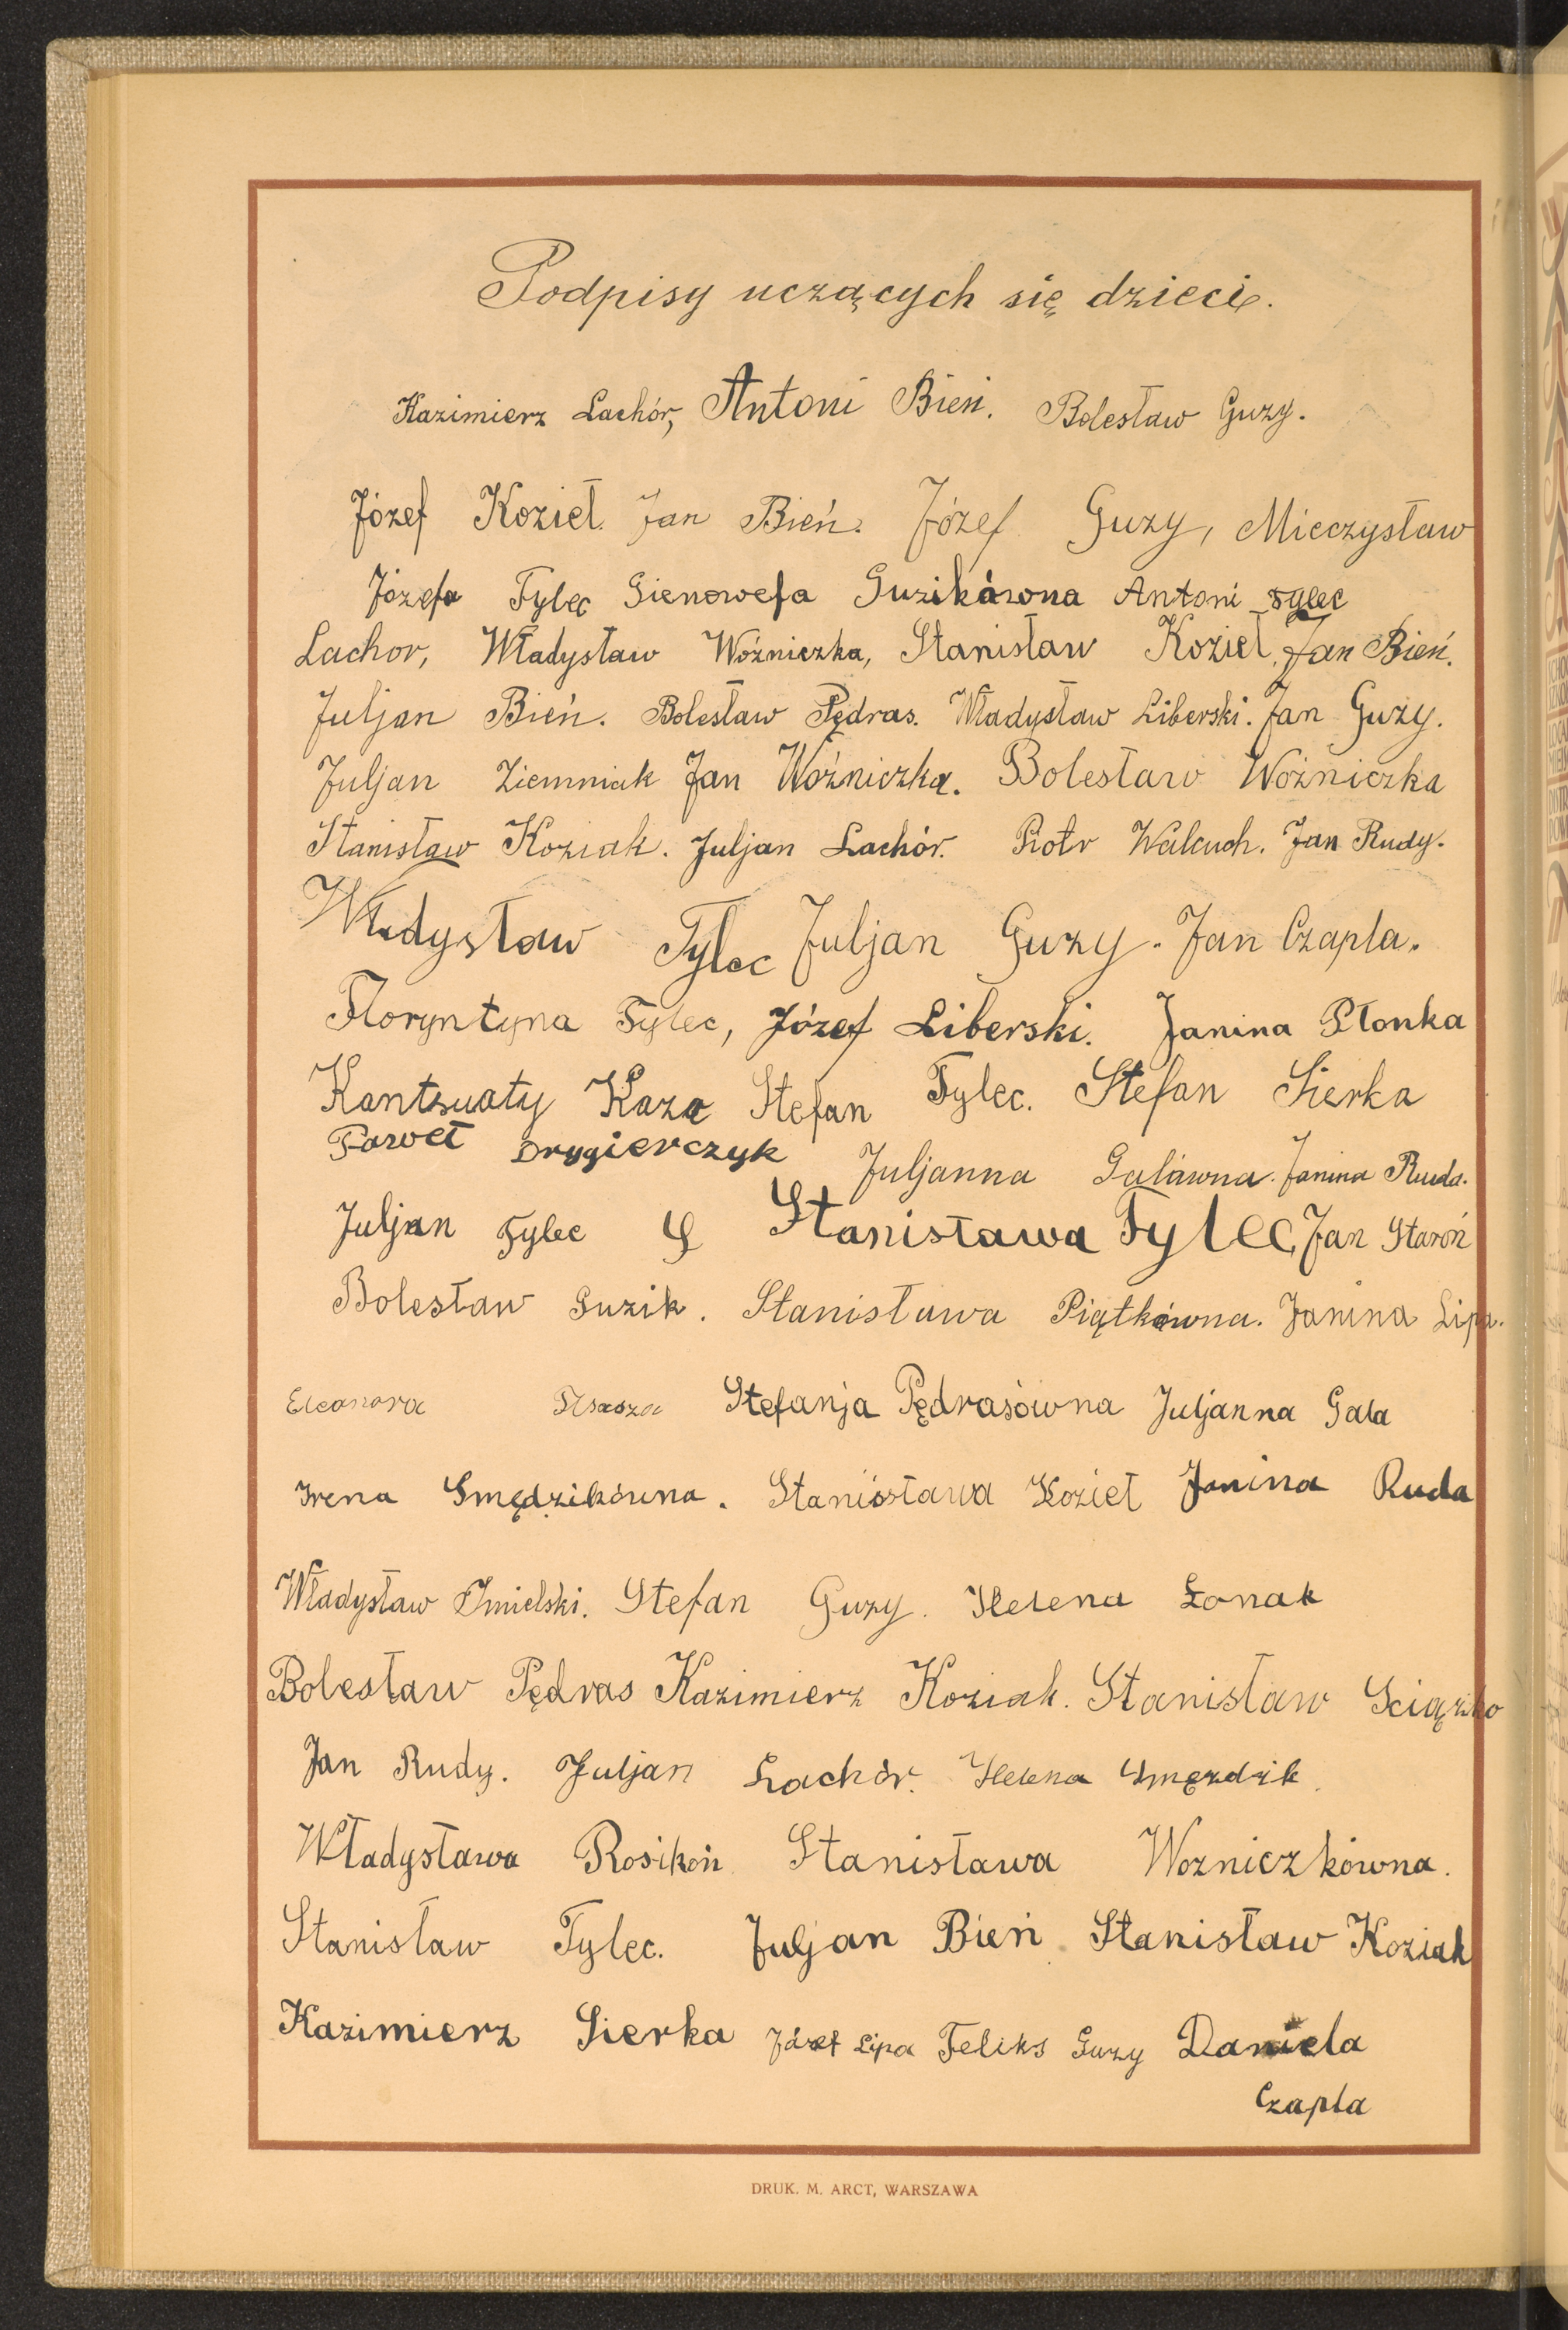 Podpisy uczących się dzieci.
Kazimierz Lachór, Antoni Bień. Bolesław Guzy.
Józef Kozieł. Jan Bień. Józef Guzy, Mieczysław
Józefa Tylec Gienowefa Guzikówona Antoni Tylec
Lachor, Władysław Woźniczka, Stanisław Kozieł, Jan Bień.
Juljan Bień. Bolesław Pędras. Władysław Liberski. Jan Guzy.
Juljan Ziemniak Jan Woźniczka. Bolesław Woźniczka
Stanisław Koziak. Juljan Lachór. Piotr Walcuch. Jan Rudy.
Władysław Tylec Juljan Guzy. Jan Czapla.
Floryntyna Tylec, Józef Liberski. Janina Płonka
Stefan Tylec. Stefan Sierka
Paweł Drygierczyk Juljanna Galówna. Janina Ruda.
Juljan Tylec S Stanisława Tylec, Jan Staroń
Bolesław Guzik. Stanisława Piątkówna. Janina Lipa.
Eleonora Stefanja Pędrasówna Juljanna Gala
Irena Smędzikówna. Stanisława Kozieł Janina Ruda
Władysław Imielski. Stefan Guzy. Helena Łonak
Bolesław Pędras Kazimierz Koziak. Stanisław Sciązko
Jan Rudy. Juljan Lachór. Helena Smęzdzik.
Władysława Rosikoń Stanisława Wozniczkówna.
Stanisław Tylec. Juljan Bień. Stanisław Koziak
Kazimierz Sierka Józef Lipa Feliks Guzy Daniela
Czapla
DRUK. M. ARCT, WARSZAWA